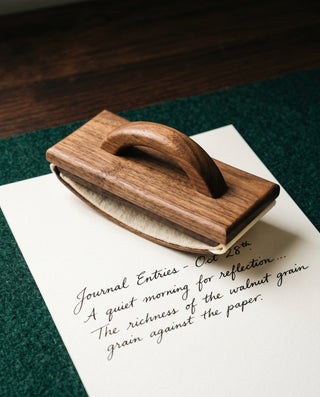 Journal Entries - Oct 28th
A quiet morning for reflection...
The richness of the walnut grain
grain against the paper.